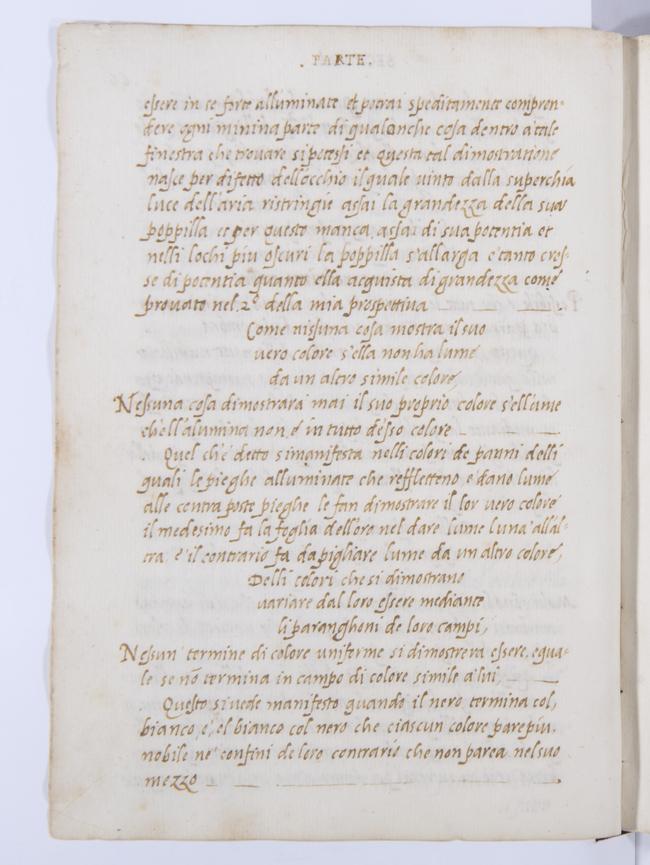 . PARTE.
essere in se forte alluminate et potrai speditamente compren-
dere ogni minina parte di qualonche cosa dentro a tale
finestra che trovare si potessi et questa tal dimostratione
nasce per difetto dell occhio il quale vinto dalla superchia
luce dell'aria ristringie assai la grandezza della sua
poppilla et per questo manca assai di sua potentia et
nelli lochi piu oscuri la poppilla s'allarga e tanto cres-
se di potentia quanto ella acquista di grandezza come
provato nel. 2º della mia prospettiva
Come nissuna cosa mostra il suo
vero colore s'ella non ha lume
da un altro simile colore,
Nessuna cosa dimostrara mai il suo proprio colore s'ell ume
che ll'alumina non e in tutto d'esso colore
Quel ch'e detto si manifesta nelli colori de panni delli
quali le pieghe alluminate che reffletteno e dano lume
alle contra poste pieghe le fan dimostrare il lor vero colore
il medesimo fa la foglia dell'oro nel dare lume l'una all'al-
tra e il contrario fa da pigliare lume da un altro colore,
Delli colori che si dimostrano
variare dal loro essere mediante
li paranghoni de loro campi,
Nessun termine di colore uniforme si dimostrera essere egua-
le se nō termina in campo di colore simile a lui,
Questo si vede manifesto quando il nero termina col,
bianco e, el bianco col nero che ciascun colore pare piu
nobile ne' confini de loro contrario che non parea nel suo
mezzo